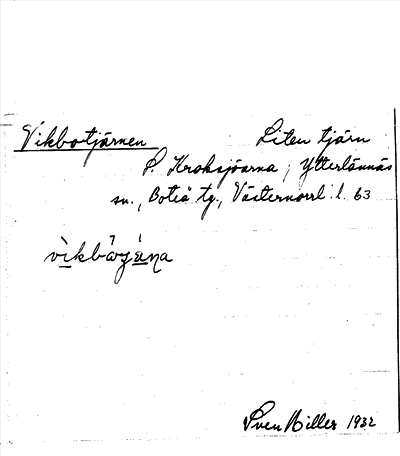 Vikbotjärnen Liten tjärn
S. Kroksjöarna, Ytterlännäs
sn., Boteå tg., Västernorrl. l. 63
Sven Hiller 1932